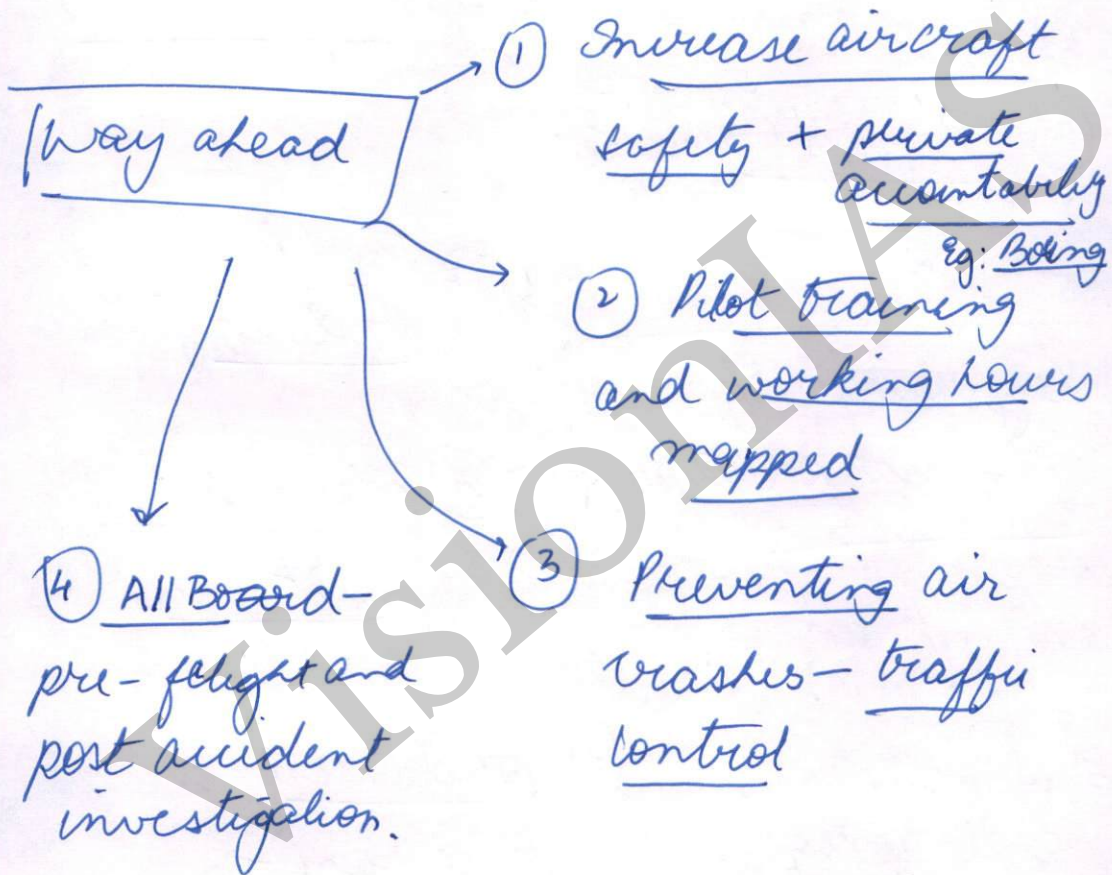 Way ahead
① Increase aircraft
safety + private
accountability
Eg: Boeing
② Pilot training
and working hours
mapped
③ Preventing air
crashes - traffic
control
④ AII Board -
pre-flight and
post accident
investigation.
VisionIAS